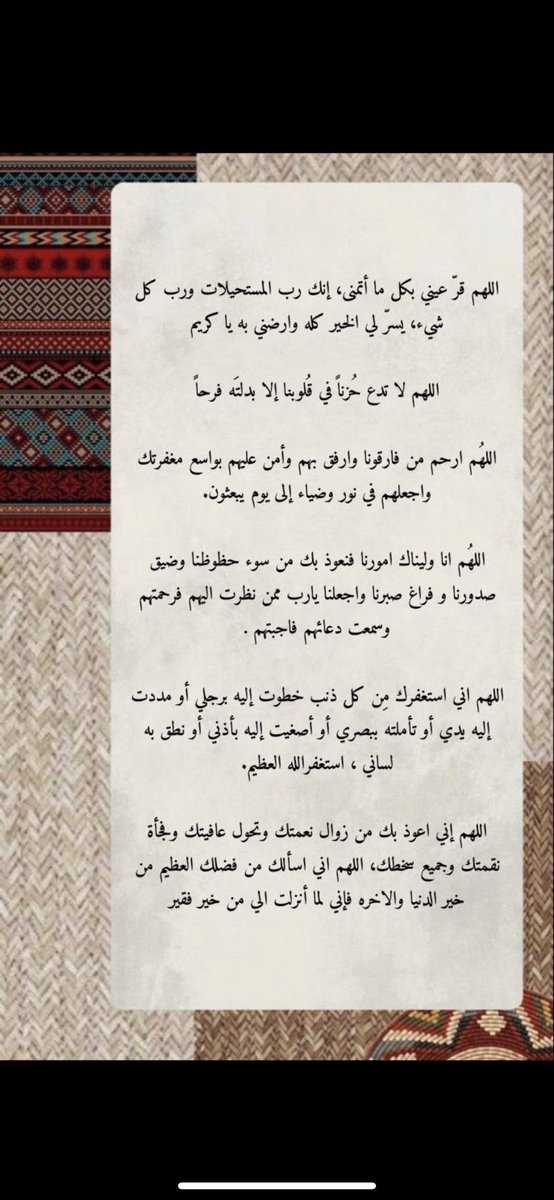 اللهم قرّ عيني بكل ما أتمنى، إنك رب المستحيلات ورب كل
شيء، يسرّ لي الخير كله وارضني به يا كريم
اللهم لا تدع حُزناً في قُلوبنا إلا بدلتَه فرحاً
اللهُم ارحم من فارقونا وارفق بهم وأمن عليهم بواسع مغفرتك
واجعلهم في نور وضياء إلى يوم يبعثون.
اللهُم انا وليناك امورنا فنعوذ بك من سوء حظوظنا وضيق
صدورنا و فراغ صبرنا واجعلنا يارب ممن نظرت اليهم فرحمتهم
وسمعت دعائهم فاجبتهم .
اللهم اني استغفرك مِن كل ذنب خطوت إليه برجلي أو مددت
إليه يدي أو تأملته ببصري أو أصغيت إليه بأذني أو نطق به
لساني ، استغفرالله العظيم.
اللهم إني اعوذ بك من زوال نعمتك وتحول عافيتك وفجأة
نقمتك وجميع سخطك، اللهم اني اسألك من فضلك العظيم من
خير الدنيا والاخره فإني لما أنزلت الي من خير فقير